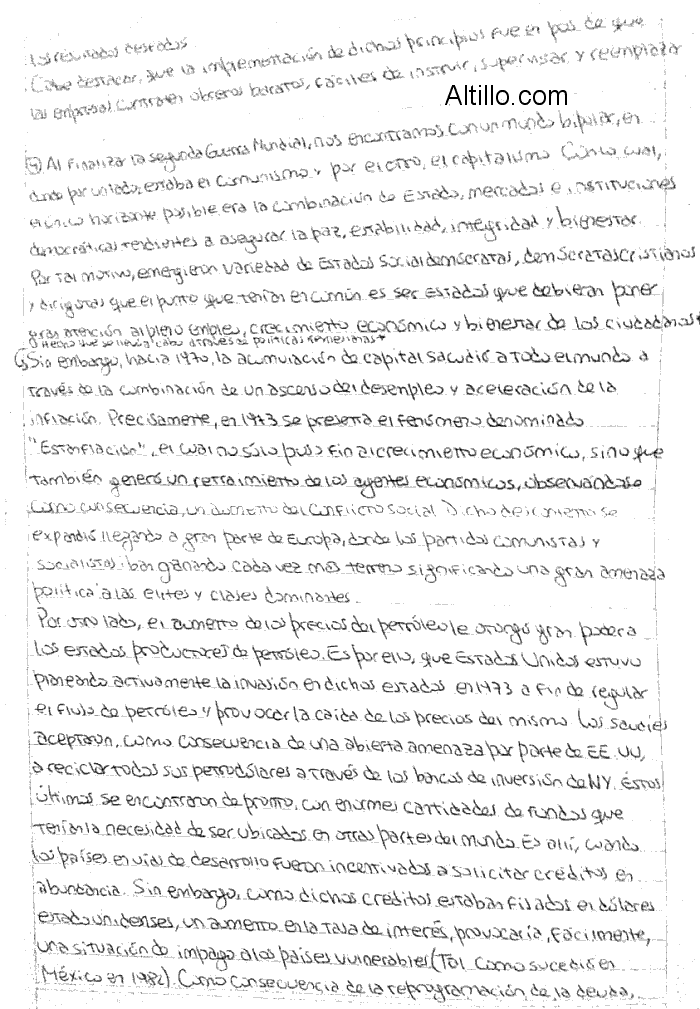 los resultados deseados
Cabe destacar, que la implementación de dichos principios fue en pos de que
las empresas contraten obreros baratos, fáciles de instruir, supervisar y reemplazar
Altillo.com
④ Al finalizar la segunda Guerra Mundial, nos encontramos con un mundo bipolar, en
donde por un lado, estaba el comunismo y por el otro, el capitalismo. Con lo cual,
el único horizonte posible era la combinación de Estado, mercados e instituciones
democráticas tendientes a asegurar la paz, estabilidad, integridad y bienestar.
Por tal motivo, emergieron variedad de Estados Socialdemócratas, demócratascristianos
y dirigistas que el punto que tenían en común es ser Estados que debieran poner
gran atención al pleno empleo, crecimiento económico y bienestar de los ciudadanos *
Hecho que se llevó a cabo através de políticas keynesianas *
Sin embargo, hacia 1970, la acumulación de capital sacudió a todo el mundo a
través de la combinación de un ascenso del desempleo y aceleración de la
inflación. Precisamente, en 1973 se presenta el fenómeno denominado
"Estanflación", el cual no sólo puso fin al crecimiento económico, sino que
también generó un retraimiento de los agentes económicos, observándose
como consecuencia, un aumento del conflicto social. Dicho descontento se
expandió llegando a gran parte de Europa, donde los partidos comunistas y
socialistas iban ganando cada vez más terreno significando una gran amenaza
política a las elites y clases dominantes.
Por otro lado, el aumento de los precios del petróleo le otorgó gran poder a
los estados productores de petróleo. Es por ello, que Estados Unidos estuvo
planeando activamente la invasión en dichos estados en 1973 a fin de regular
el flujo de petróleo y provocar la caída de los precios del mismo. Los saudíes
aceptaron, como consecuencia de una abierta amenaza por parte de EE.UU,
a reciclar todos sus petrodólares a través de los bancos de inversión de NY. Estos
últimos se encontraron de pronto, con enormes cantidades de fondos que
tenían la necesidad de ser ubicados en otras partes del mundo. Es allí, cuando
los países en vías de desarrollo fueron incentivados a solicitar créditos en
abundancia. Sin embargo, como dichos créditos estaban fijados en dólares
estadounidenses, un aumento en la tasa de interés, provocaría, fácilmente,
una situación de impago a los países vulnerables (Tal como sucedió en
México en 1982). Como consecuencia de la reprogramación de la deuda,